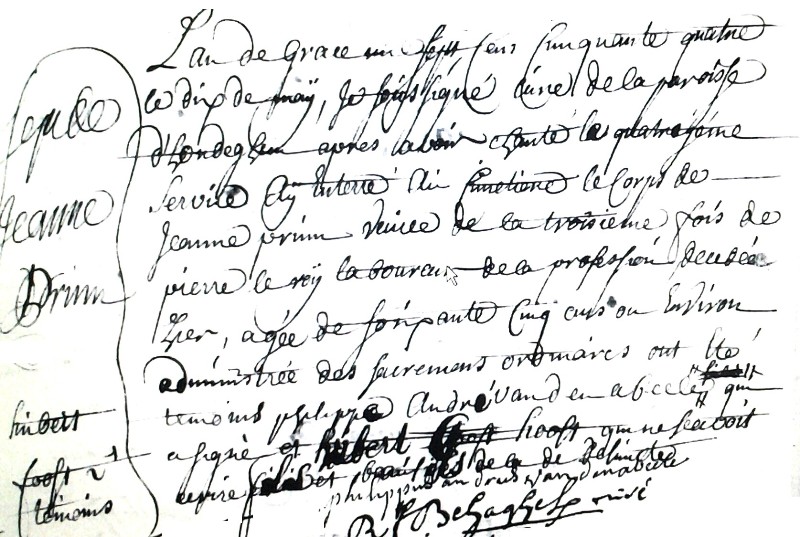 L'an de Grace mil sept cens Cinquante quatre
le dix de maÿ, Je soussigné Curé de la paroisse
d'hondeghem apres avoir chanté le quatrezieme
Service Aÿ Enterré Au Cimetiere le Corps de
Jeanne prinn veuve de la troisieme fois de
pierre le roÿ laboureur de la profession decedée
hier, agée de soixante Cinq ans ou Environ
administrée des sacremens ordinaires ont Eté
temoins philippe André Vanden abeele qui
a signé et hubert hooft qui ne scavoit
ecrire
philippus andreas vanden abeele
Behaghel curé
sepulture
Jeanne
Prinn
hubert
hooft
témoins